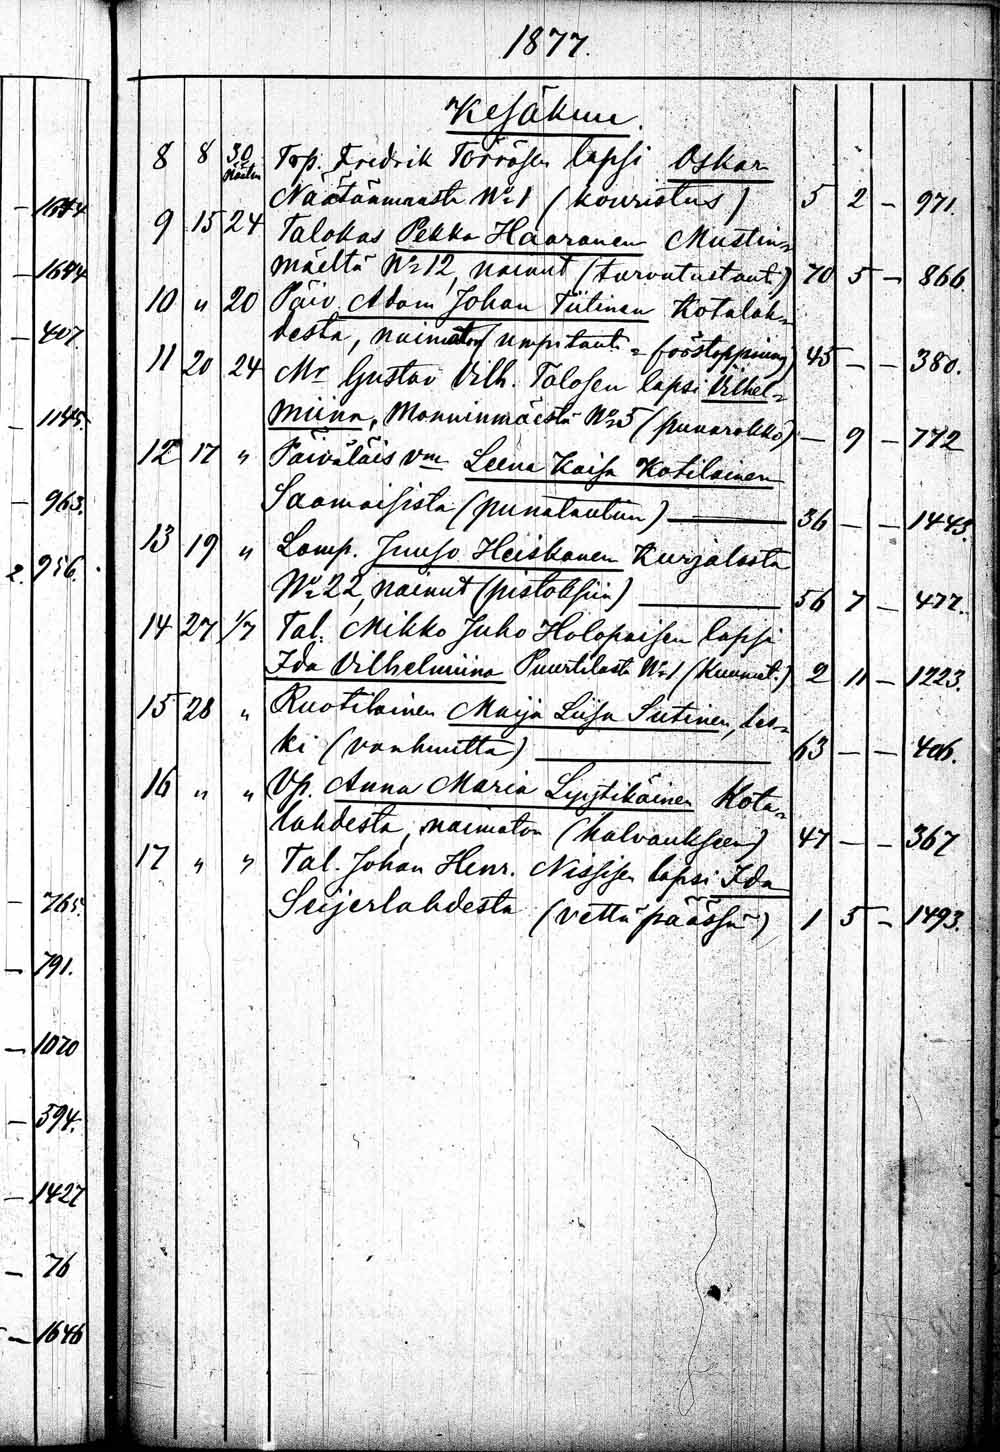 1877.
Kesäkuu.
8 8 30 Trp. Fredrik Törrösen lapsi Oskar
Näätäanmaasta No 1 (kouristus) 5 2 – 971.
9 15 24 Talokas Pekka Haaranen Mustin=
mäeltä No 12, nainut (turvatustauti) 70 5 – 866.
10 " 20 Päiv. Adam Johan Tiitinen Kotalah=
desta, naimaton (umpitauti = förstoppning) 45 – – 380.
11 20 24 Mr Gustav Vilh. Talosen lapsi Vilhel=
miina, Manninmäestä No 5 (punarokko) – 9 – 772
12 17 " Päiväläis vm Leena Kaisa Kotilainen
Saamaisista (punatautiin) 36 – – 1443.
13 19 " Lamp. Juuso Heiskanen Kurjalasta
No 22, nainut (pistoksiin) 56 7 – 477.
14 27 1/7 Tal. Mikko Juho Holopaisen lapsi
Ida Vilhelmiina Puurtilasta No 1 (kuumet.) 2 11 – 1223.
15 28 " Ruotilainen Maija Liisa Sutinen, les=
ki (vanhuutta) 63 – – 406.
16 " " Vp. Anna Maria Lyytikäinen Kota=
lahdesta, naimaton (halvaukseen) 47 – – 367
17 " " Tal. Johan Henr. Nissisen lapsi Ida
Seijerlahdesta (vettä päässä) 1 5 – 1493.
– 1684
– 407.
– 1145.
– 963.
2. 956.
– 765.
– 791.
– 1070
– 594.
– 1427
– 76
– 1646